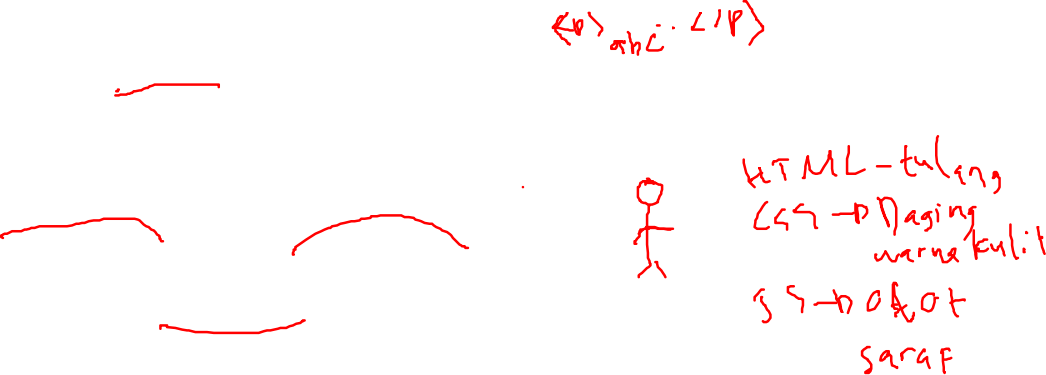 <p> abc. </p>
HTML - tulang
CSS → Daging
warna kulit
JS → otot
saraf